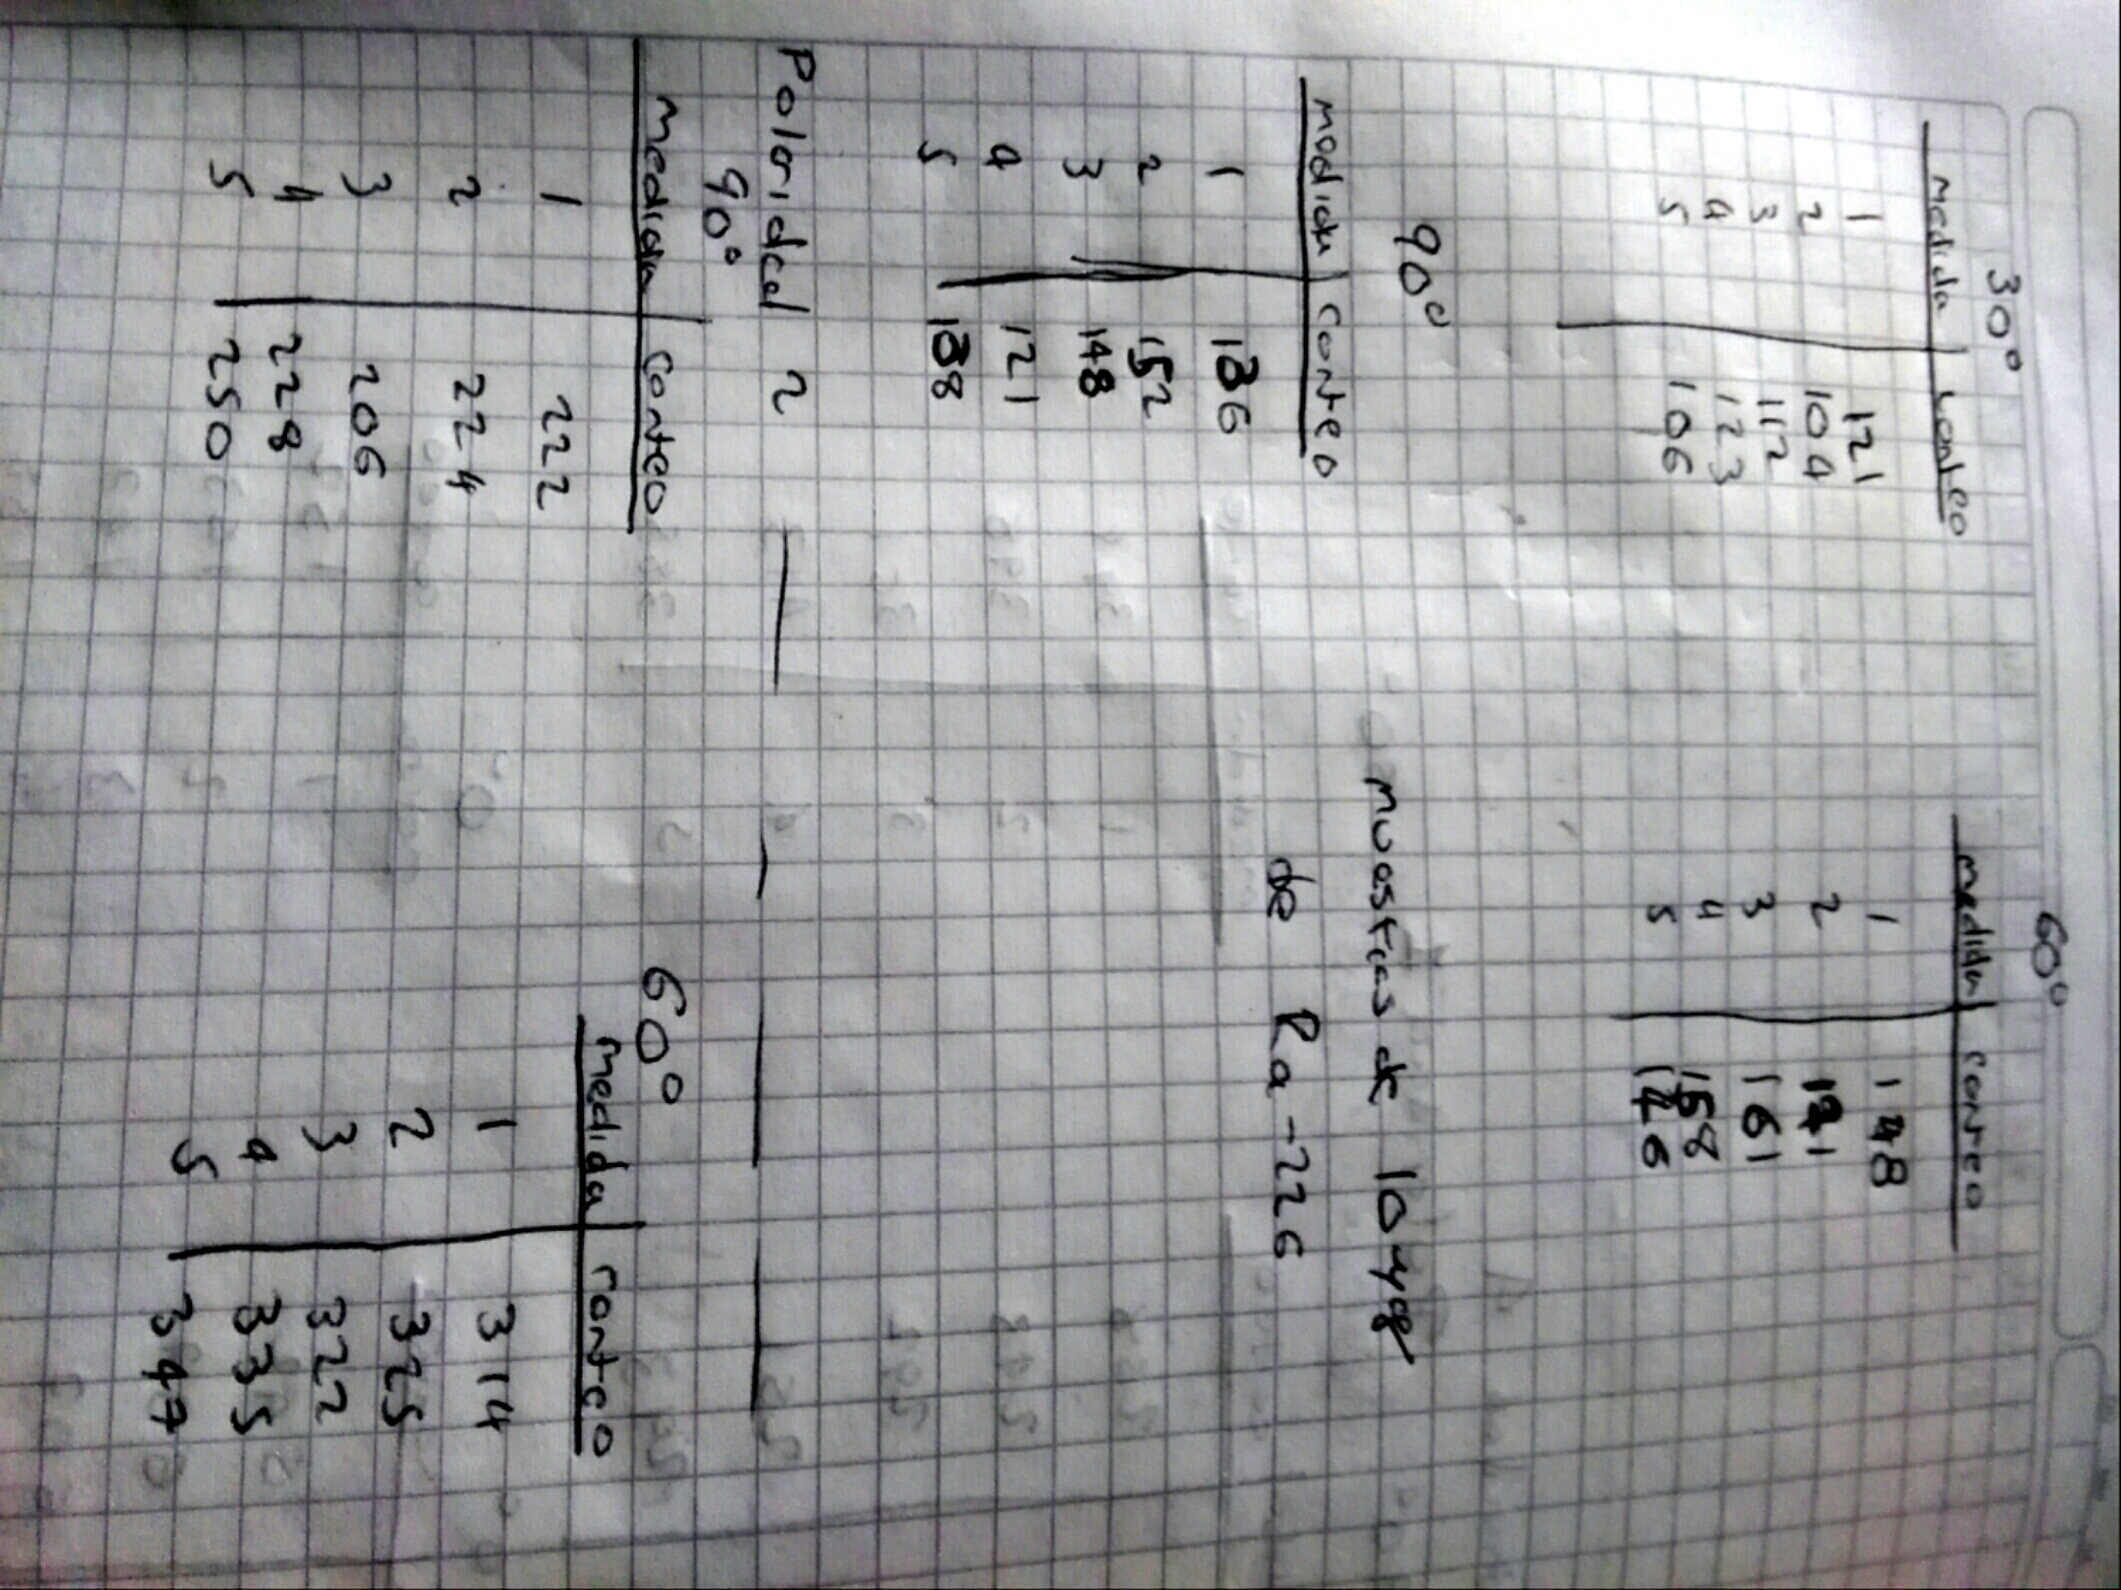 30°
medida conteo
1 121
2 104
3 112
4 123
5 106
60°
medida conteo
1 148
2 121
3 161
4 158
5 146
90°
medida conteo
1 136
2 152
3 148
4 121
5 138
muestras de 10
de Ra-226
Polaridad 2
90°
medida conteo
1 222
2 224
3 206
4 228
5 250
60°
medida conteo
1 314
2 325
3 322
4 335
5 347